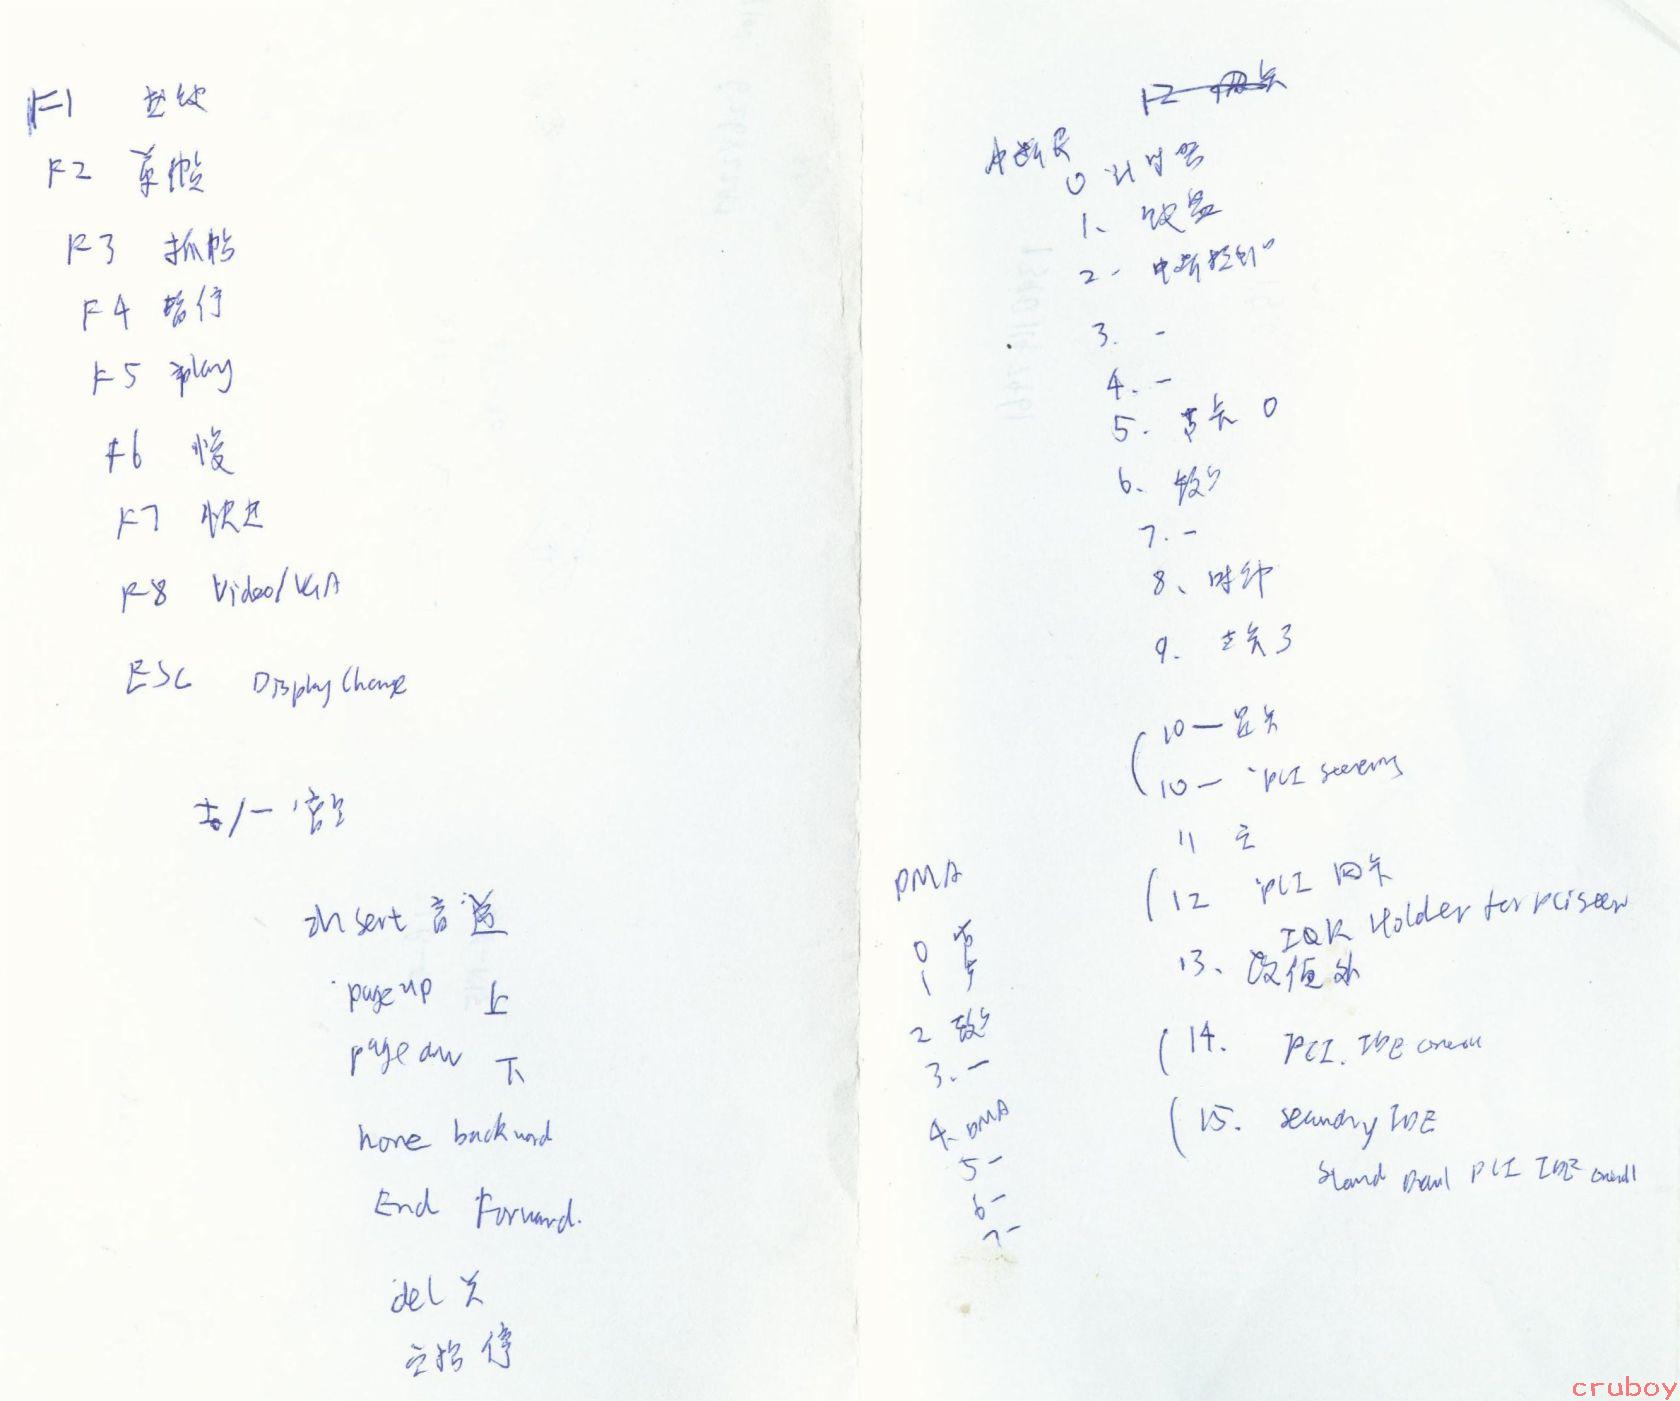 F1
F2 单帧
F3 抓帧
F4 暂停
F5 play
F6 慢
F7 快进
F8 Video/VGA
ESC Display Change
/一 音量
Insert 音道
page up 上
page dw 下
home backward
End Forward.
del 关
停
12 网卡
中断
0 计时器
1、键盘
2- 中断控制
3. -
4. -
5. 声卡 0
6、软
7. -
8、时钟
9. 3
10 — 显卡
10 — PCI steering
11
12 PCI 网卡
IQR Holder for PCI steer
13、数值
14. PCI. IDE
15. secondry IDE
PCI IDE
DMA
0 声
1 卡
2 软
3. -
4. DMA
5 -
6 -
7 -
cruboy